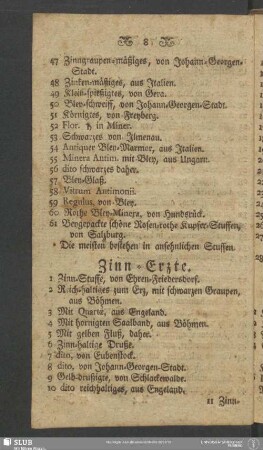 8
47 Zinngraupen-mäßiges, von Johann-Georgen-
Stadt.
48 Zinken-mäßiges, aus Italien.
49 Klein-speißigtes, von Gera.
50 Bley-schweiff, von Johann-Georgen-Stadt.
51 Körnigtes, von Freyberg.
52 Flor. ♄ in Miner.
53 Schwarzes von Ilmenau.
54 Antiquer Bley-Marmor, aus Italien.
55 Minera Antim. mit Bley, aus Ungarn.
56 dito schwarzes daher.
57 Bley-Glaß.
58 Vitrum Antimonii.
59 Regulus, von Bley.
60 Rothe Bley-Minera, von Hundsrück.
61 Beygepackte schöne Rosenrothe Kupfer-Stuffen,
von Salzburg.
Die meisten bestehen in ansehnlichen Stuffen.
Zinn-Erzte.
1 Zinn-Stuffe, von Ehren-Friedersdorf.
2 Reichhaltiges zum Erz, mit schwarzen Graupen,
aus Böhmen.
3 Mit Quartz, aus Engeland.
4 Mit hornigten Saalband, aus Böhmen.
5 Mit gelben Fluß, daher.
6 Zinn-haltige Druße.
7 dito, von Eubenstock.
8 dito, von Johann-Georgen-Stadt.
9 Gelb-drußigte, von Schlackewalde.
10 dito reichhaltiges, aus Engeland.
11 Zinn-
SLUB